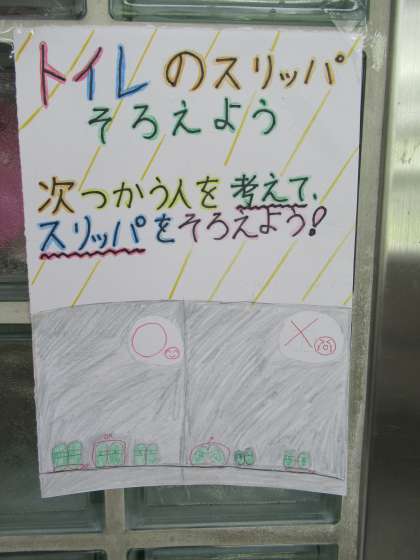 トイレのスリッパ
そろえよう
次つかう人を考えて、
スリッパをそろえよう!
○
×